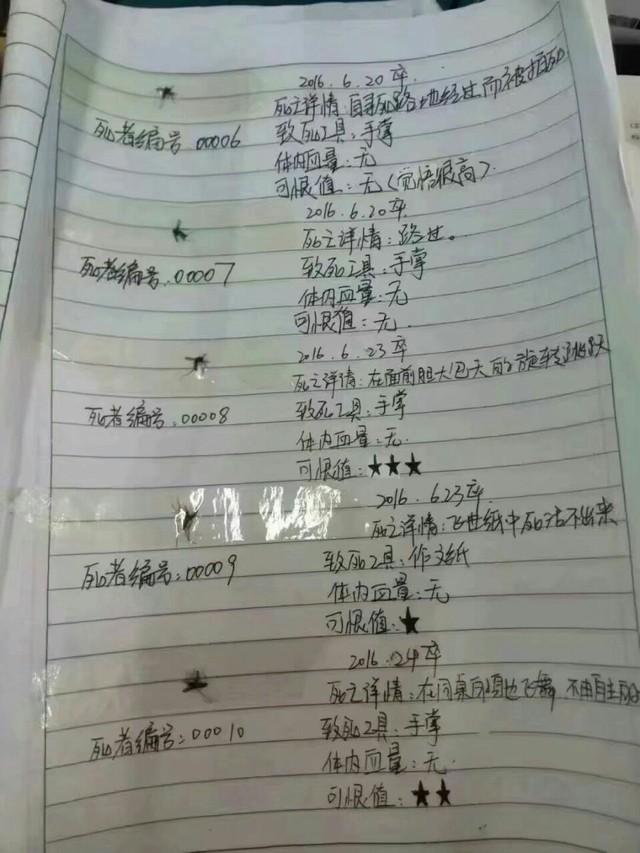 2016.6.20卒
死之详情:自寻死路地经过而被拍死
死者编号 00006
致死工具:手掌
体内血量:无
可恨值:无(觉悟很高).
2016.6.20卒
死之详情:路过。
死者编号:00007
致死工具:手掌
体内血量:无
可恨值:无.
2016.6.23卒
死之详情:在面前胆大包天的旋转
死者编号:00008
致死工具:手掌
体内血量:无.
可恨值:★★★
2016.6.23卒.
死之详情:飞进纸中死活不出来
死者编号:00009
致死工具:作文纸
体内血量:无
可恨值:★
2016.24卒
死之详情:在同桌飞舞,不由自主
死者编号:00010
致死工具:手掌
体内血量:无.
可恨值:★★